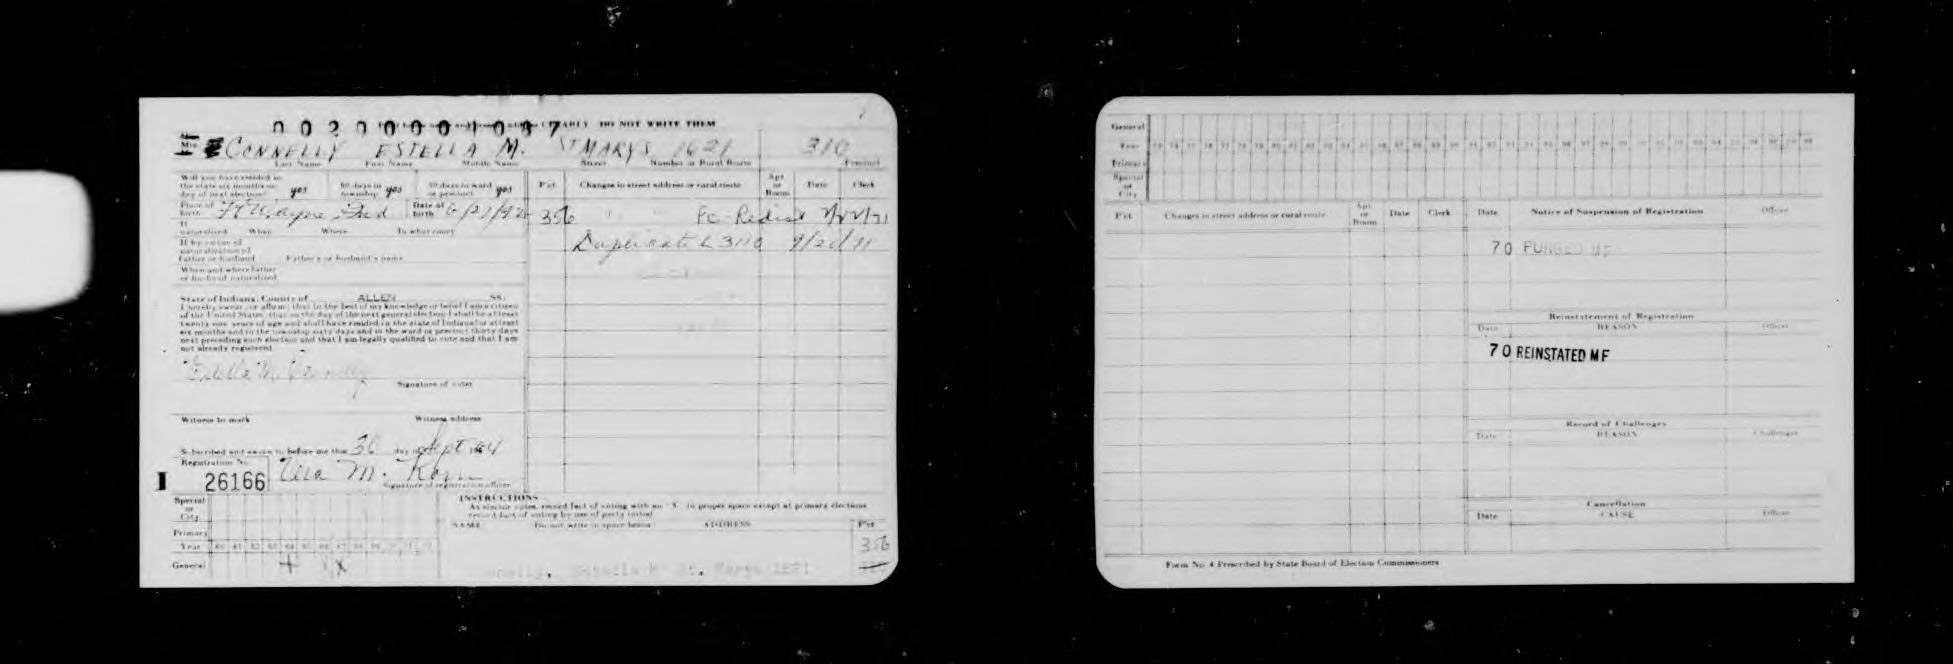 0020001037
CLEARLY DO NOT WRITE THEM
CONNELLY ESTELLA M. ST MARYS 1621 310
Last Name First Name Middle Name Street Number or Rural Route Precinct
Will you have resided in
the state six months on
day of next election? yes 60 days in township yes 30 days in ward or precinct yes
P'ct Changes in street address or rural route Apt or Room Date Clerk
Place of birth Ft Wayne, Ind Date of birth
356
If naturalized When Where In what court
Duplicate L 3110
If by virtue of
naturalization of
father or husband Father's or husband's name
When and where father
or husband naturalized
State of Indiana, County of ALLEN SS:
I hereby swear (or affirm) that to the best of my knowledge or belief I am a citizen
of the United States; that on the day of the next general election I shall be at least
twenty-one years of age and shall have resided in the state of Indiana for at least
six months and in the township sixty days and in the ward or precinct thirty days
next preceding such election and that I am legally qualified to vote and that I am
not already registered.
Estella M. Connelly
Signature of voter
Witness to mark Witness address
Subscribed and sworn to before me this 30 day of Sept 1964
Registration No.
I 26166
Signature of registration officer
Special or City
INSTRUCTIONS
As elector votes, record fact of voting with an "X" in proper space except at primary elections
record fact of voting by use of party initial.
NAME Do not write in space below ADDRESS P'ct
Primary
Year 60 61 62 63 64 65 66 67 68 69 70 71 72
356
General
General
Year
Primary
Special or City
P'ct Changes in street address or rural route Apt or Room Date Clerk Date Notice of Suspension of Registration Officer
70 PURGED MF
Reinstatement of Registration
Date REASON Officer
70 REINSTATED MF
Record of Challenges
Date REASON Challenger
Cancellation
Date CAUSE Officer
Form No. 4 Prescribed by State Board of Election Commissioners